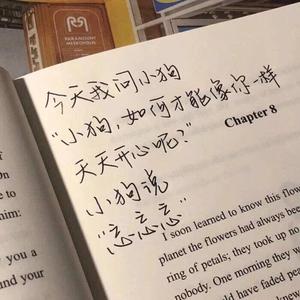 今天我问小狗
“小狗，如何才能像你一样
天天开心呢？”
小狗说
“忘忘忘”
Chapter 8
I soon learned to know this flow
planet the flowers had always been
ring of petals; they took up no
nobody. One morning they
would have faded
of
to
him:
you a
your